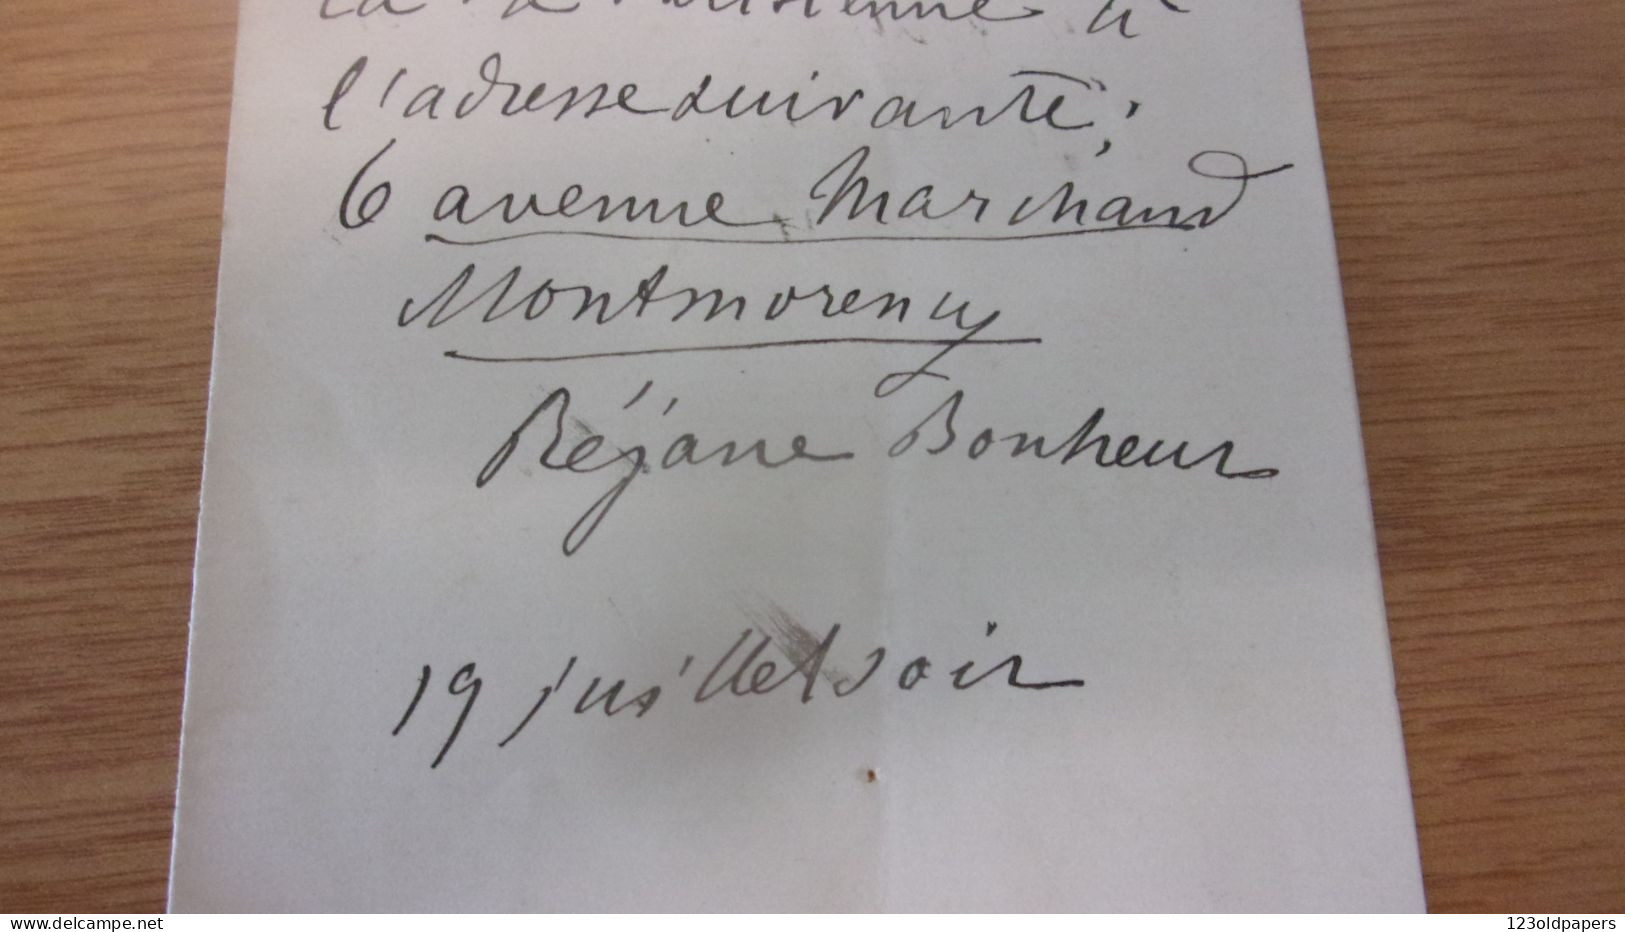 Parisienne à
l'adresse suivante :
6 avenue Marchand
Montmorency
Réjane Bonheur
19 juillet soir
delcampe.net
123oldpapers